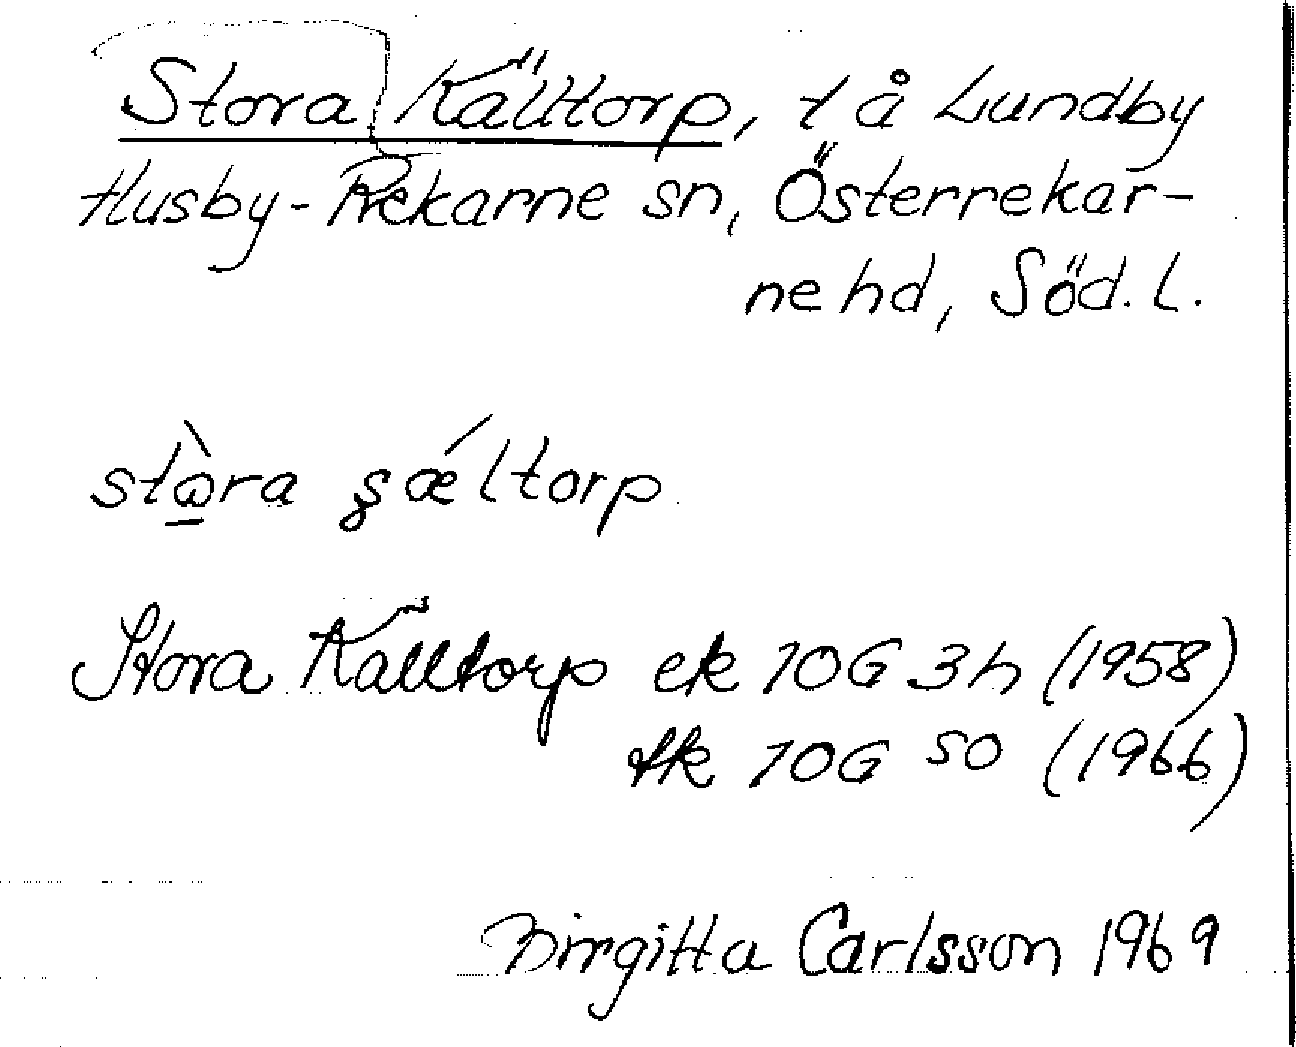 Stora Källtorp, t å Lundby
Husby-Rekarne sn, Österrekar-
ne hd, Söd. L.
stɷ̠̀ra ʂǽltorp
Stora Källtorp ek 10G 3h (1958)
tk 10G SO (1966)
Birgitta Carlsson 1969